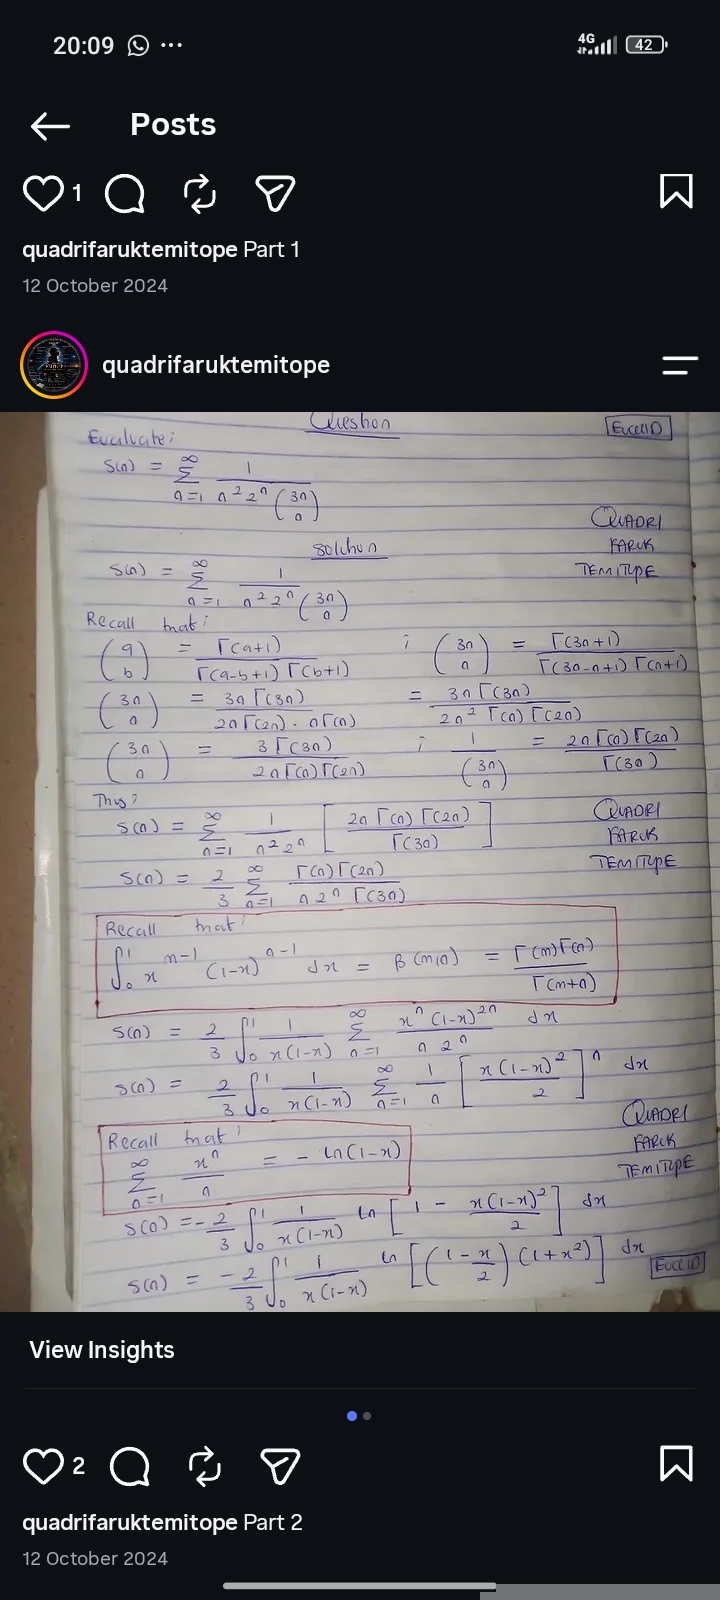 20:09 ... 4G 42
Posts
1
quadrifaruktemitope Part 1
12 October 2024
quadrifaruktemitope
Question
EUCLID
Evaluate;
S(n) = ∞Σn=1 1/(n² 2ⁿ (3n n))
QUADRI
FARUK
TEMITYPE
Solution
S(n) = ∞Σn=1 1/(n² 2ⁿ (3n n))
Recall that;
(a b) = Γ(a+1)/(Γ(a-b+1) Γ(b+1)) ; (3n n) = Γ(3n+1)/(Γ(3n-n+1) Γ(n+1))
(3n n) = 3n Γ(3n)/(2n Γ(2n) . n Γ(n)) = 3n Γ(3n)/(2n² Γ(n) Γ(2n))
(3n n) = 3 Γ(3n)/(2n Γ(n) Γ(2n)) ; 1/(3n n) = 2n Γ(n) Γ(2n)/Γ(3n)
Thus;
S(n) = ∞Σn=1 1/(n² 2ⁿ) [2n Γ(n) Γ(2n)/Γ(3n)]
QUADRI
FARUK
TEMITYPE
S(n) = 2/3 ∞Σn=1 Γ(n) Γ(2n)/(n 2ⁿ Γ(3n))
Recall that;
∫₀¹ x^(m-1) (1-x)^(n-1) dx = β(m,n) = Γ(m) Γ(n)/Γ(m+n)
S(n) = 2/3 ∫₀¹ 1/(x(1-x)) ∞Σn=1 xⁿ(1-x)²ⁿ/(n 2ⁿ) dx
S(n) = 2/3 ∫₀¹ 1/(x(1-x)) ∞Σn=1 1/n [x(1-x)²/2]ⁿ dx
QUADRI
FARUK
TEMITYPE
Recall that;
∞Σn=1 xⁿ/n = - ln(1-x)
S(n) = - 2/3 ∫₀¹ 1/(x(1-x)) ln [1 - x(1-x)²/2] dx
S(n) = - 2/3 ∫₀¹ 1/(x(1-x)) ln [(1 - x/2)(1+x²)] dx
EUCLID
View Insights
2
quadrifaruktemitope Part 2
12 October 2024